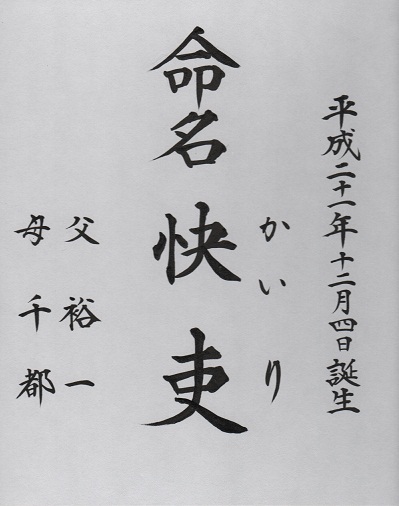 平成二十一年十二月四日誕生
かいり
命名 快吏
父 裕一
母 千都